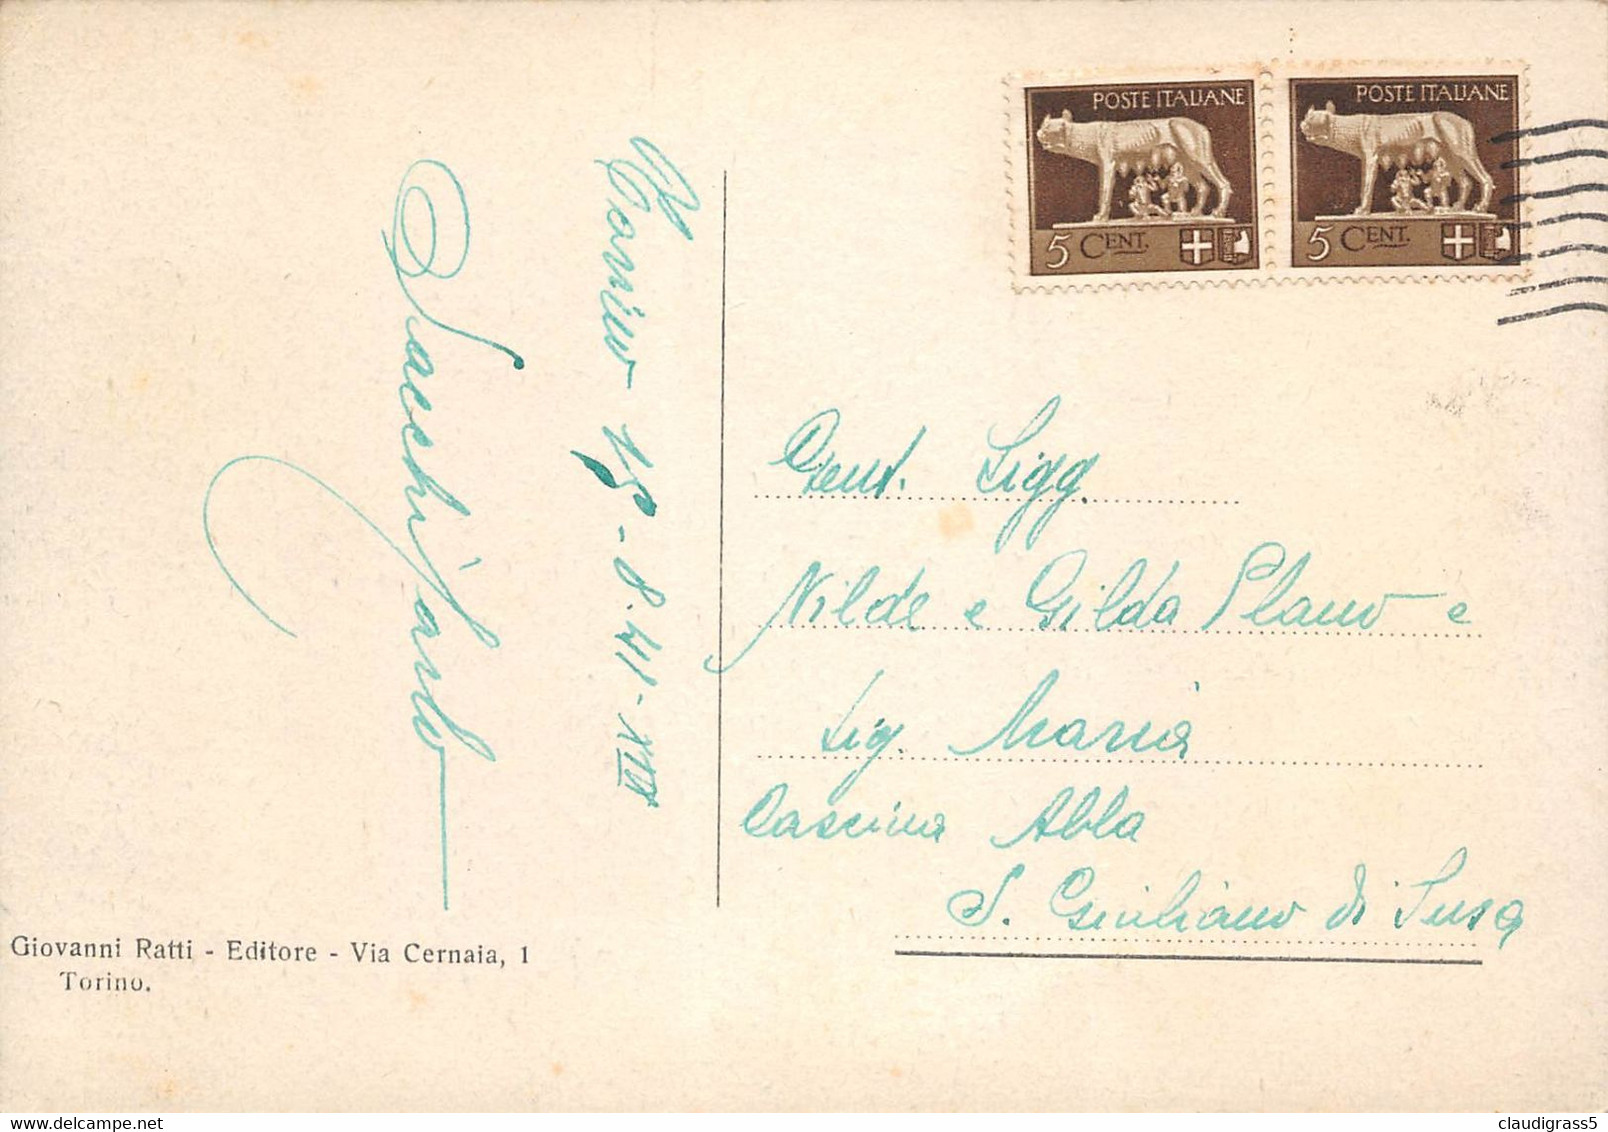 POSTE ITALIANE
5 CENT.
POSTE ITALIANE
5 CENT.
Torino 15-8.41-XIX
Gent. Sigg.
Nilde e Gilda Plano e
Sig. Maria
Cascina Abla
S. Giuliano di Susa
Giovanni Ratti - Editore - Via Cernaia, 1
Torino.
claudigrass5